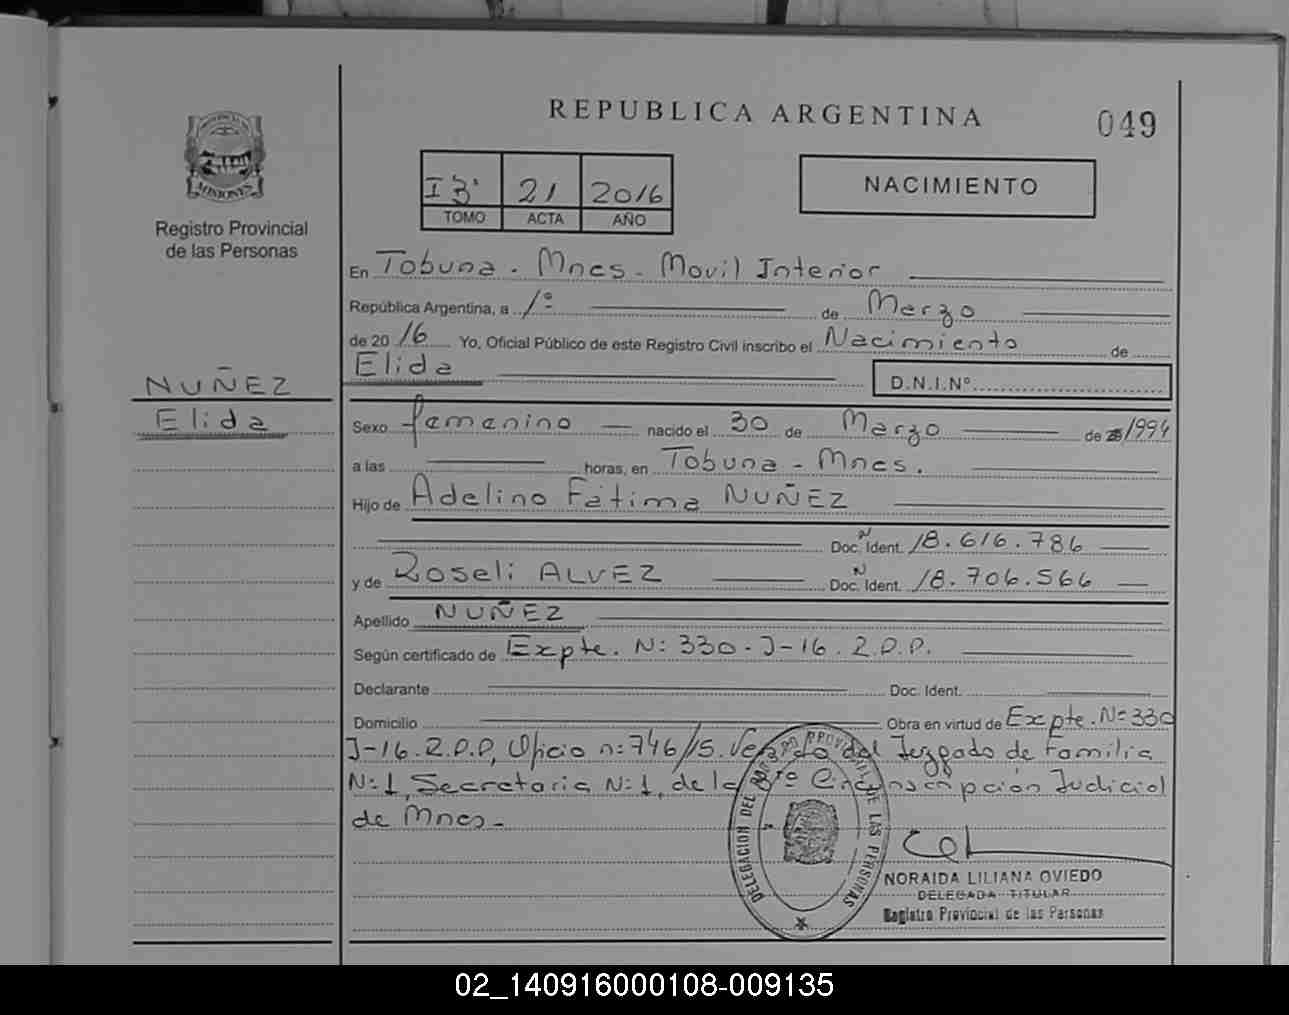 REPUBLICA ARGENTINA
049
MISIONES
Registro Provincial
de las Personas
I3' 21 2016
TOMO ACTA AÑO
NACIMIENTO
En Tobuna - Mnes - Movil Interior
República Argentina, a 1º de Marzo
de 20 16 Yo, Oficial Público de este Registro Civil inscribo el Nacimiento de
Elida
D.N.I.Nº
NUÑEZ
Elida
Sexo femenino nacido el 30 de Marzo de 1994
a las horas, en Tobuna - Mnes.
Hijo de Adelino Fátima NUÑEZ
Doc. N Ident. 18.616.786
y de Roseli ALVEZ Doc. N Ident. 18.706.566
Apellido NUÑEZ
Según certificado de Expte. N: 330-J-16. R.P.P.
Declarante Doc. Ident.
Domicilio Obra en virtud de Expte. Nº 330
J-16. R.P.P, Oficio nº 746/15. del Juzgado de Familia
Nº 1, Secretaria Nº 1, de la Circunscripción Judicial
de Mnes-
DELEGACION DEL REGISTRO PROVINCIAL DE LAS PERSONAS
NORAIDA LILIANA OVIEDO
DELEGADA TITULAR
Registro Provincial de las Personas
02_140916000108-009135